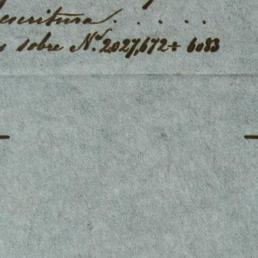 escritura . . . . .
s sobre N.º 2027,672 + 6083